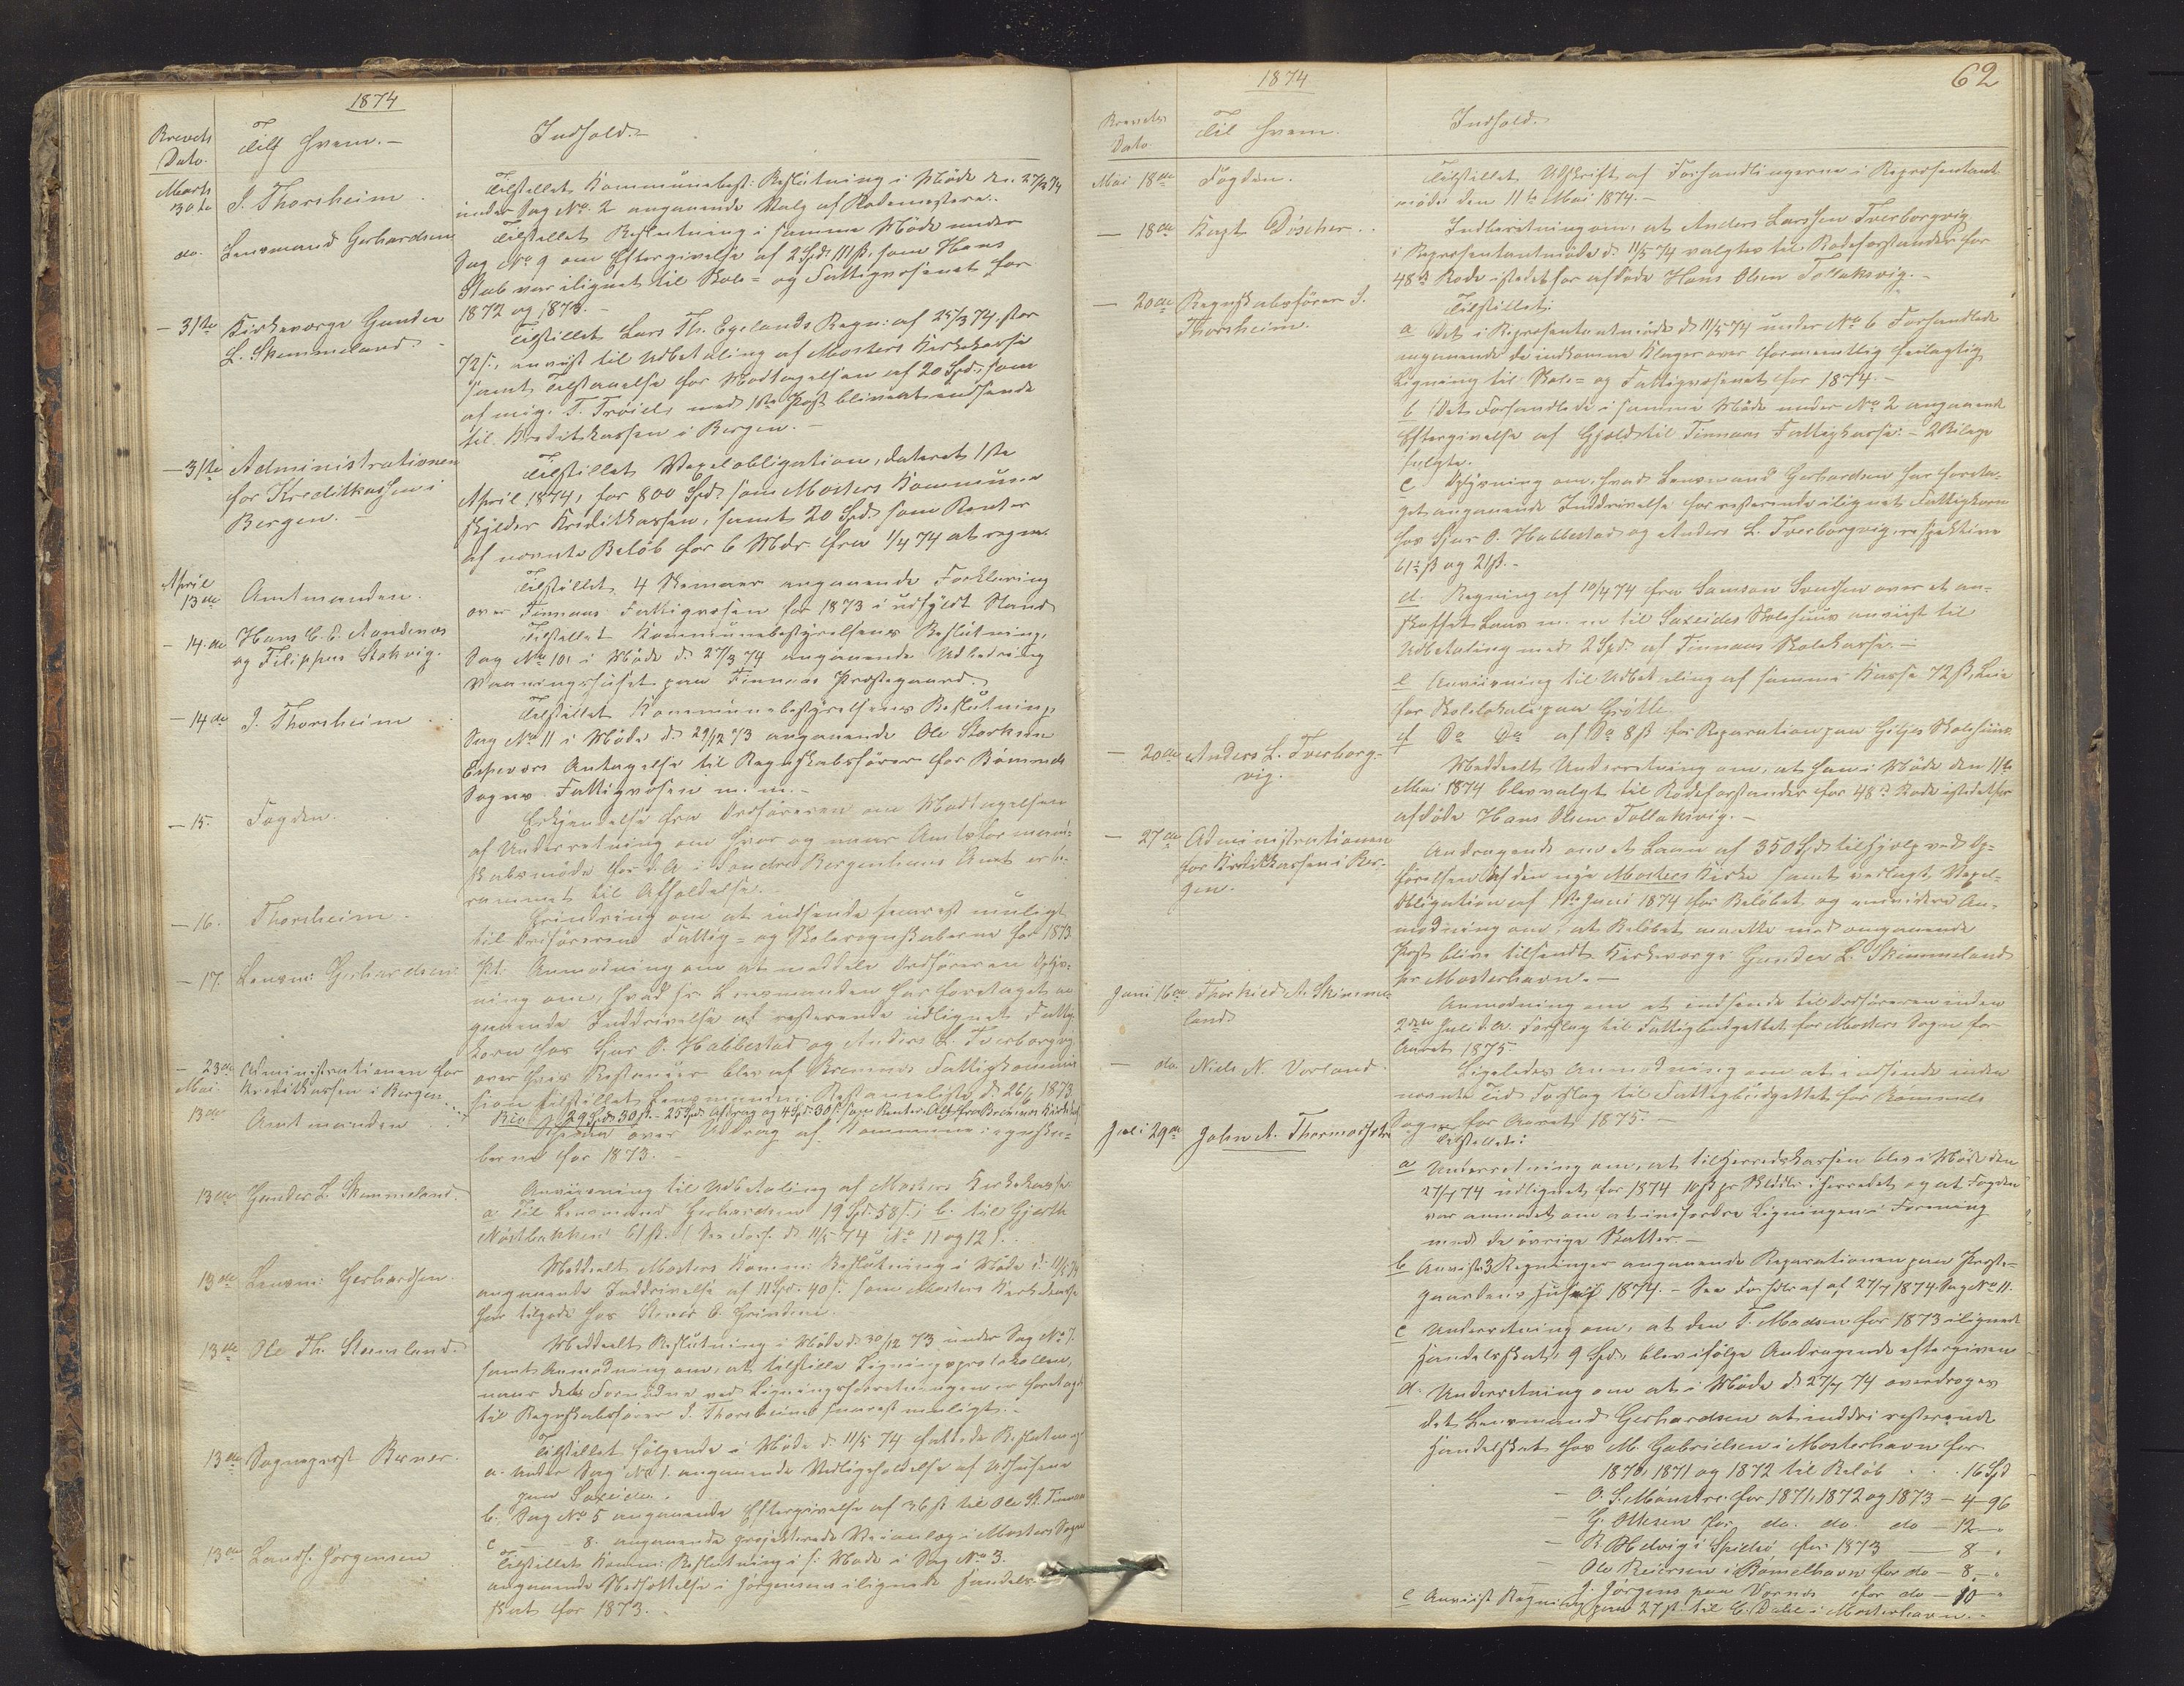 1874
Brevets Dato.
Till hvem.-
Indhold.-
Marts 30te
I. Thorsheim.
Tilstillet Kommünebest: Beslütning i Möde den 27/3 74
ünder Sag No. 2 angaaende Valg af Rodemestere.
do.
Lensmand Gerhardsen
Tilstillet Beslutning i samme Möde under
Sag No 9 om Eftergivelse af 2 Spd. 111 ß, som Hans
Stub var ilignet til Skole= og Fattigvæsenet for
1872 og 1873.-
- 31te
Kirkeværge Gunder
L. Skimmeland.
Tilstillet Lars Th. Egelands Regn: af 25/3 74, stor
72 ß., anvist til Udbetaling af Mosters Kirkekasse
samt Tilstaaelse for Modtagelsen af 20 Spd., som
af mig, T. Tröics, med 1ste Post bliver at indsende
til Kreditkassen i Bergen.-
- 31te
Administrationen
for Kreditkassen i
Bergen.-
Tilstillet Vexelobligation, dateret 1ste
April 1874, for 800 Spd. som Mosters Kommüne
skylder Kreditkassen, samt 20 Spd. som Renter
af nævnte Belöb for 6 Mdr. fra 1/4 74 at regne.
April 13de
Amtmanden.
Tilstillet 4 Skemaer angaaende Forklaring
over Finnaas Fattigvæsen for 1873 i udfyldt Stand
- 14.de
Hans C. E. Aandenæs
og Filippus Stokvig.
Tilstillet Kommünebestyrelsens Beslütning,
Sag No 10, i Möde d. 27/3 74 angaaende Udbedring
Vaaningshuset paa Finnaas Præstegaard.
- 14de
I. Thorsheim
Tilstillet Kommünebestyrelsens Beslütning
Sag No 11 i Möde d. 29/12 73 angaaende Ole Storksen
Espeværs Antagelse til Regnskabsförer for Bömmels
Sogns Fattigvæsen m. m.-
- 15.
Fogden.
Erkjendelse fra Ordföreren om Modtagelsen
af Underretning om hvor og naar Amtsformand=
skabsmöde for d. A. i Söndre Bergenhuus Amt er be=
rammet til Afholdelse.
- 16.
Thorsheim.
Erindring om at indsende snarest muligt
til Ordföreren Fattig= og Skoleregnskaberne for 1873.
- 17.
Lensm: Gerhardsen
Pt: Anmodning om at meddele Ordföreren Oplys=
ning om, hvad hr. Lensmanden har foretaget an
gaaende Inddrivelse af resterende udlignet Fattig
korn hos Sjur O. Habbestad og Anders L. Tverborgvig
over hvis Restancer blev af Bremnes Fattigkommis
sion tilstillet Lensmanden Restanceliste d. 26/6 1873.
- 23de
Administrationen for
Kreditkassen i Bergen
29 Spd. 30 ß. - 25 Spd. Afdrag og 4 Spd. 30 ß. som Renter. Alt fra Bremnes Kirkekasse
Mai 13de
Amtmanden
Skema over Uddrag af Kommüneregnska=
berne for 1873.-
13de
Gunder L. Skimmeland.
Anvisning til Udbetaling af Mosters Kirkekasse:
a til Lensmand Gerhardsen 19 Spd. 58 ß; b. til Gjerth
Nöstbakken 61 ß. (See Forh. d. 11/5 74 No 11 og 12).
13de
Lensm: Gerhardsen.
Meddelt Mosters Komm: Beslütning i Möde d. 11/5 74
angaaende Inddrivelse af 11 Spd. 40 ß. som Mosters Kirkekasse
har tilgode hos
13de
Ole Th. Steinsland.
Meddeelt Beslütning i Möde d. 30/12 73 under Sag No 7.
samt Anmodning om, at tilstille Ligningsprotokollen,
naar dets Fornödne ved Ligningsforretningen er foretaget
til Regnskabsförer I. Thorsheim snarest muligt.-
13de
Sogneprest Berner.
Tilstillet fölgende i Möde d. 11/5 74 fattede Beslutninger
a. Under Sag No 1. angaaende Vedligeholdelse af Udhusene
paa Saxeide.
b. Sag No 5 angaaende Eftergivelse af 36 ß til Ole K.
c — - 8. angaaende projekterede Veianlæg i Mosters Sogn
13de
Landh. Jörgensen
Tilstillet Komm: Beslutning i s: Möde i Sag No 3.
angaaende Nedsættelse i Jörgensens ilignede Handels=
skat for 1873.-
62
1874
Brevets Dato.
Til hvem.
Indhold.
Mai 18de
Fogden.
Tilstillet Udskrift af Forhandlingerne i Repræsentant
möde den 11te Mai 1874.-
- 18de
Kapt Döscher.
Indberetning om, at Anders Larssen Tverborgvig
i Repræsentantmöde d. 11/5 74 valgtes til Rodeforstander for
48de Rode istedetfor afdöde Hans Olsen Tollaksvig.-
- 20de
Regnskabsförer I.
Thorsheim.
Tilstillet:
a Det i Repræsentantmöde d 11/5 74 under No 6 Forhandlede
angaaende de indkomne Klager over formeentlig feilagtig
Ligning til Skole= og Fattigvæsenet for 1874.-
b Det Forhandlede i samme Möde under No 2 angaaende
Eftergivelse af Gjæld til Finnaas Fattigkasse.- 2 Bilage
fulgte.
c Oplysning om, hvad Lensmand Gerhardsen har foreta=
get angaaende Inddrivelse for resterende ilignet Fattigkorn
hos Sjur O. Habbestad og Anders L. Tverborgvig, respektive
61½ ß og 21 ß.-
d. Regning af 10/4 74 fra Samson Svedsen over et an=
skaffet Laas m. m til Saxeides Skolehuus anviist til
Udbetaling med 2 Spd. af Finnaas Skolekasse.-
e Anviisning til Udbetaling af samme Kasse 72 ß, Leie
for Skolelokale paa Grötle.
f Do Do af Do 8 ß for Reparation paa Giljes Skolehuus
- 20de
Anders L. Tverborg=
vig.
Meddeelt Underretning om, at han i Möde den 11te
Mai 1874 blev valgt til Rodeforstander for 48de Rode istedetfor
afdöde Hans Olsen Tollaksvig.-
- 27de
Administrationen
for Kreditkassen i Ber=
gen.
Andragende om et Laan af 350 Spd. til Hjælp ved Op=
förelsen af den nye Mosters Kirke samt vedlagt Vexel=
Obligation af 1ste Juni 1874 for Belöbet og endvidere An=
modning om, at Belöbet maatte med omgaaende
Post blive tilsendt Kirkeværge Gunder L. Skimmeland
pr Mosterhavn.-
Juni 16de
Thorkild A. Skimme=
land
Anmodning om at indsende til Ordföreren inden
2den Juli d. A. Forslag til Fattigbudgettet for Mosters Sogn for
Aaret 1875
- do.
Niels N. Vorland.
Ligeledes Anmodning om at indsende inden
nævnte Tid Forslag til Fattigbüdgettet for Bömmels
Sogn for Aaret 1875.-
Juli 29de
John A. Thormodsæter
Tilstillet:
a Underretning om, at til Herredskassen blev i Möde den
27/7 74 udlignet for 1874 10 ß pr Skdlr. i Herredet og at Fogden
var anmodet om at indfordre Ligningen i Forening
med de övrige Skatter.-
b Anvist 3 Regninger angaaende Reparationen paa Præste=
gaardens Huse i 1874.- See Forhdl. af 27/7 1874. Sag No 11.
c Underretning om, at den T. Madsen for 1873 ilignede
Handelsskat, 9 Spd., blev ifölge Andragende eftergiven
d. Underretning om at i Möde d 27/7 74 overdroges
det Lensmand Gerhardsen at inddri resterende
Handelskat hos M. Gabrielsen i Mosterhavn for
1870, 1871 og 1872 til Belöb . . . 16 Spd
- O. S. Mönstre for 1871, 1872 og 1873 - 4 - 96
- G. Ottesen for do. do. do - 12 - "
- R. Helvig i Spidsö for 1873 — 8 "
- Ole Reiersen i Bömelhavn for do - 8 - "
- J. Jörgens paa Vornes for do - 10 - "
e Anviist Regning paa 27 ß til C. Dahl i Mosterhavn.-